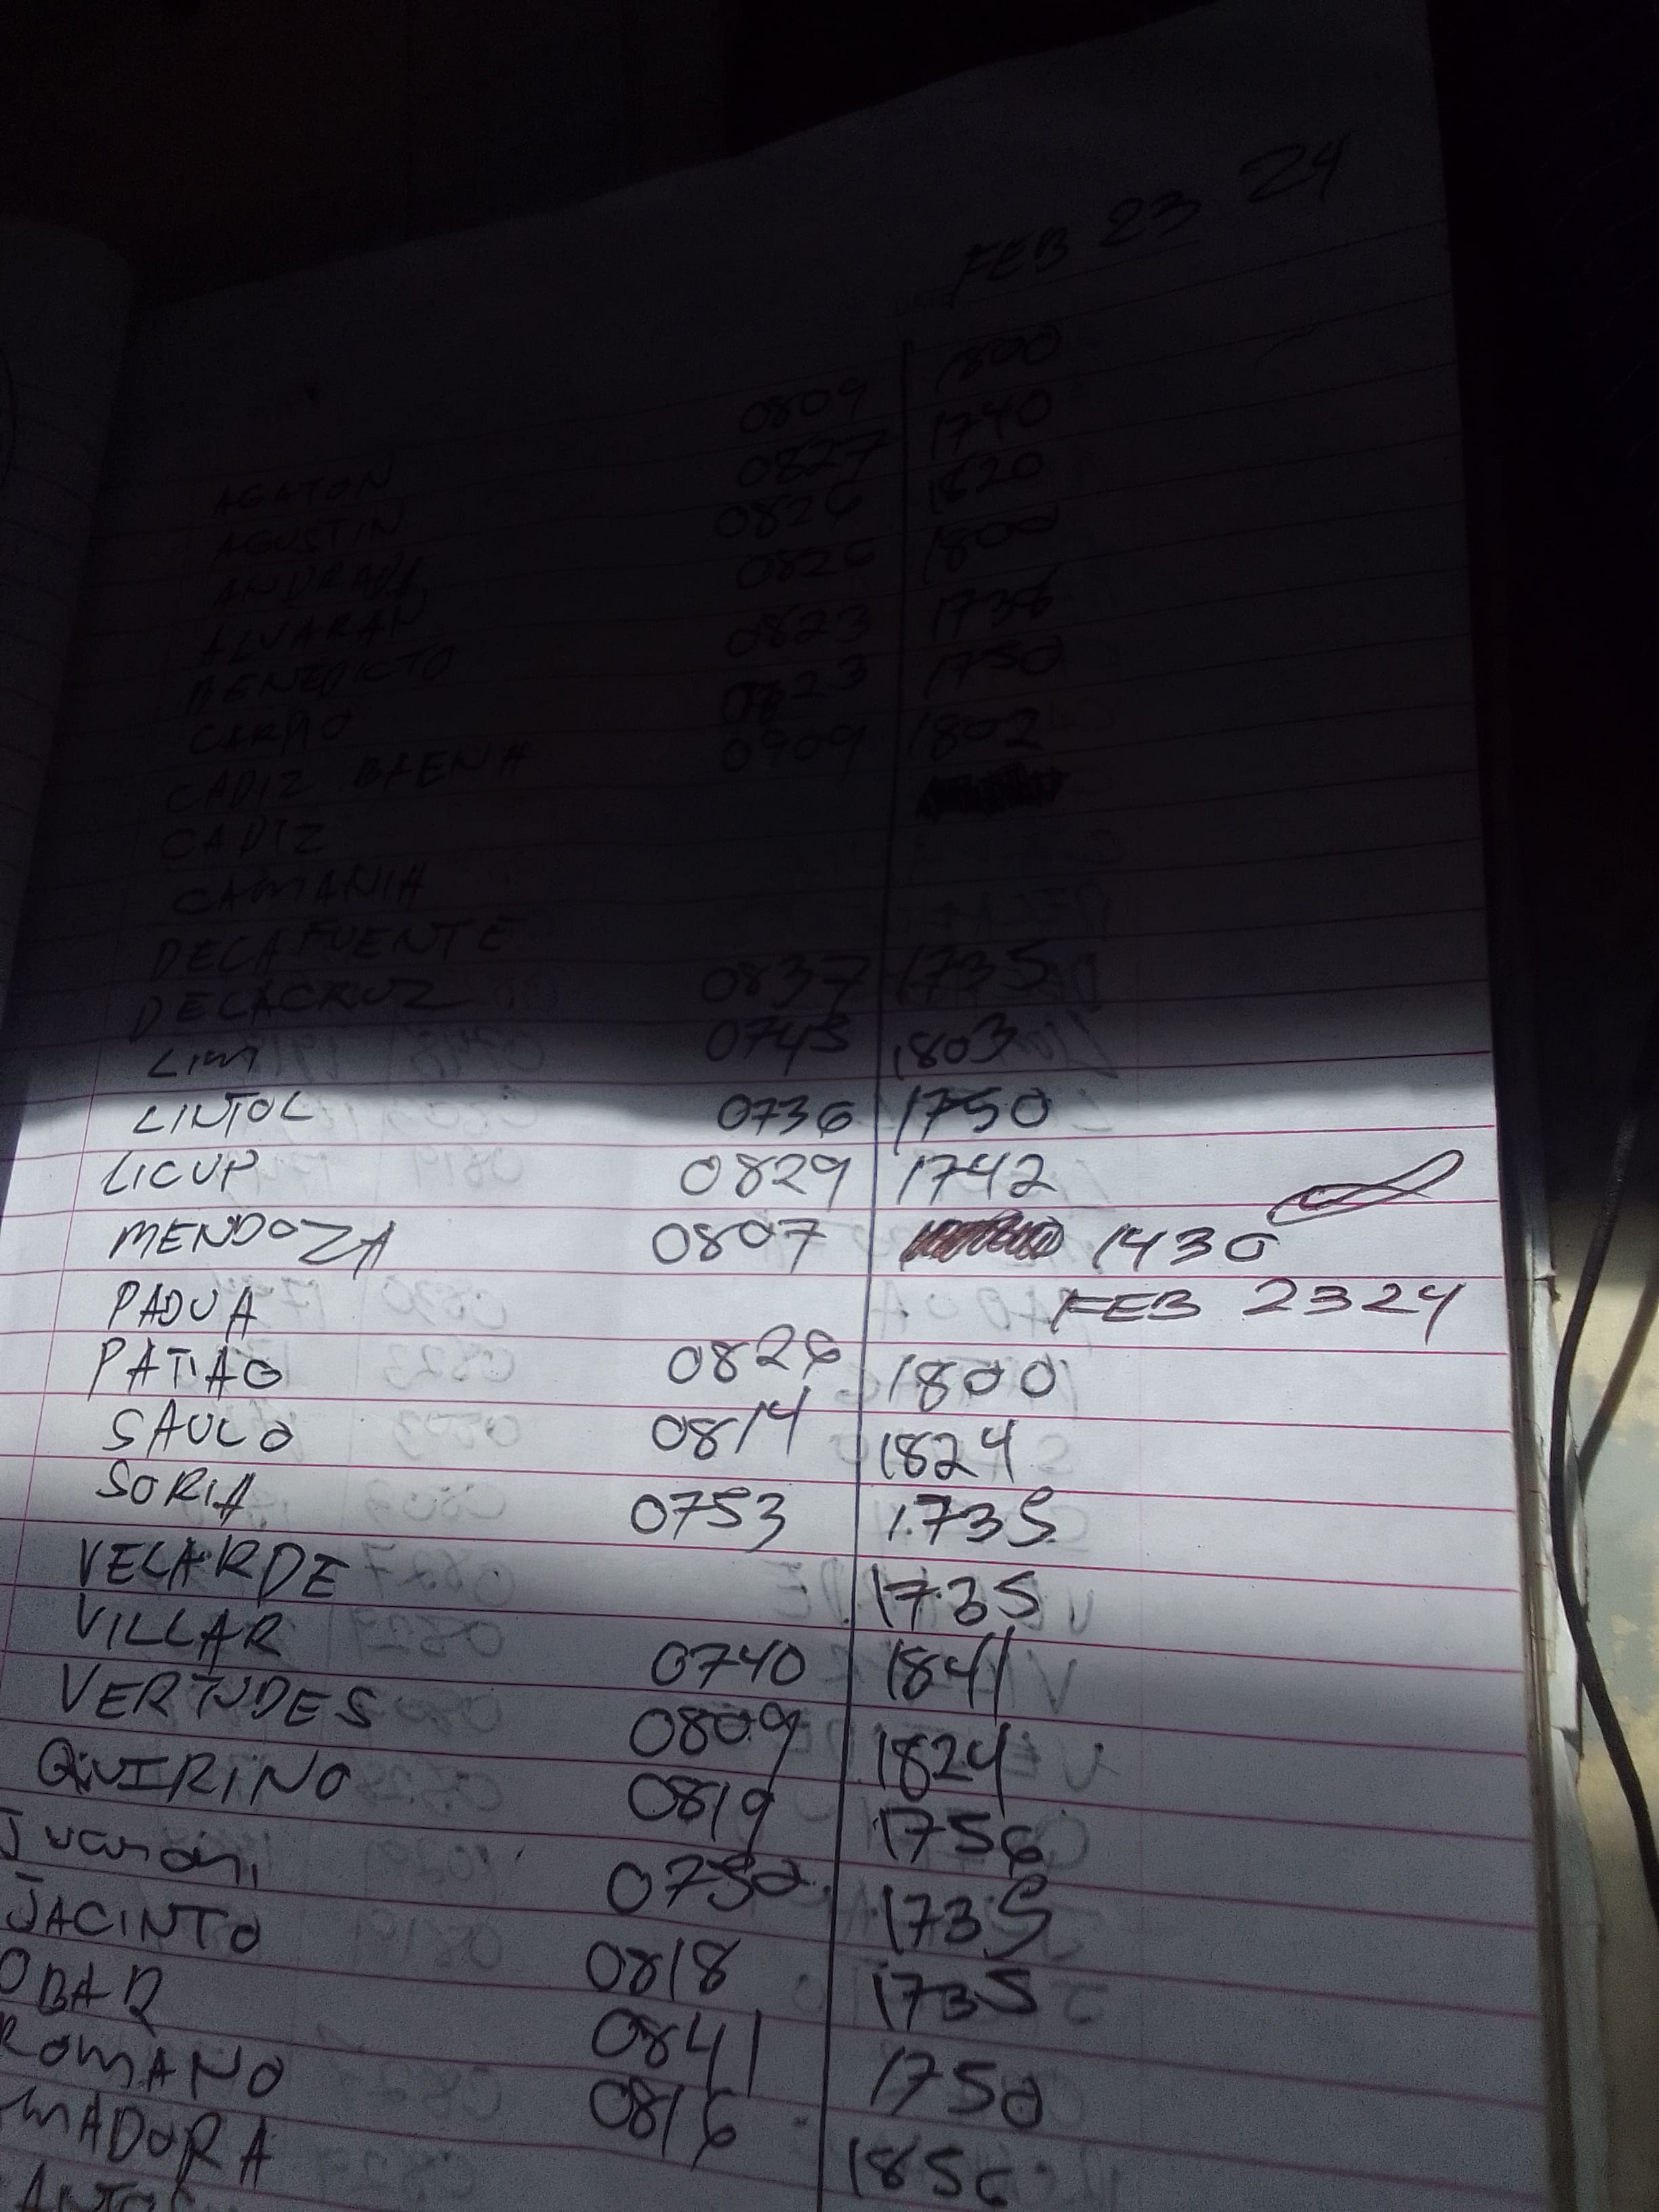 FEB 23 24
DATE
AGATON 0809 1800
AGUSTIN 0827 1740
ANDRADA 0826 1820
ALVARAN 0826 1800
BENEDICTO 0823 1736
CARPIO 0823 1750
CADIZ BAENA 0909 1802
CADIZ
CAMANIA
DELAFUENTE
DELACRUZ 0837 1735
LIM 0745 1803
LINTOL 0736 1750
LICUP 0829 1742
MENDOZA 0807 1430
PADUA FEB 23 24
PATIAG 0826 1800
SAULO 0814 1824
SORIA 0753 1735
VELARDE 1735
VILLAR 0740 1841
VERTUDES 0809 1824
QUIRINO 0819 1756
0750 1735
JACINTO 0818 1735
OBAR 0841 1750
ROMANO 0816 1856
MADORA